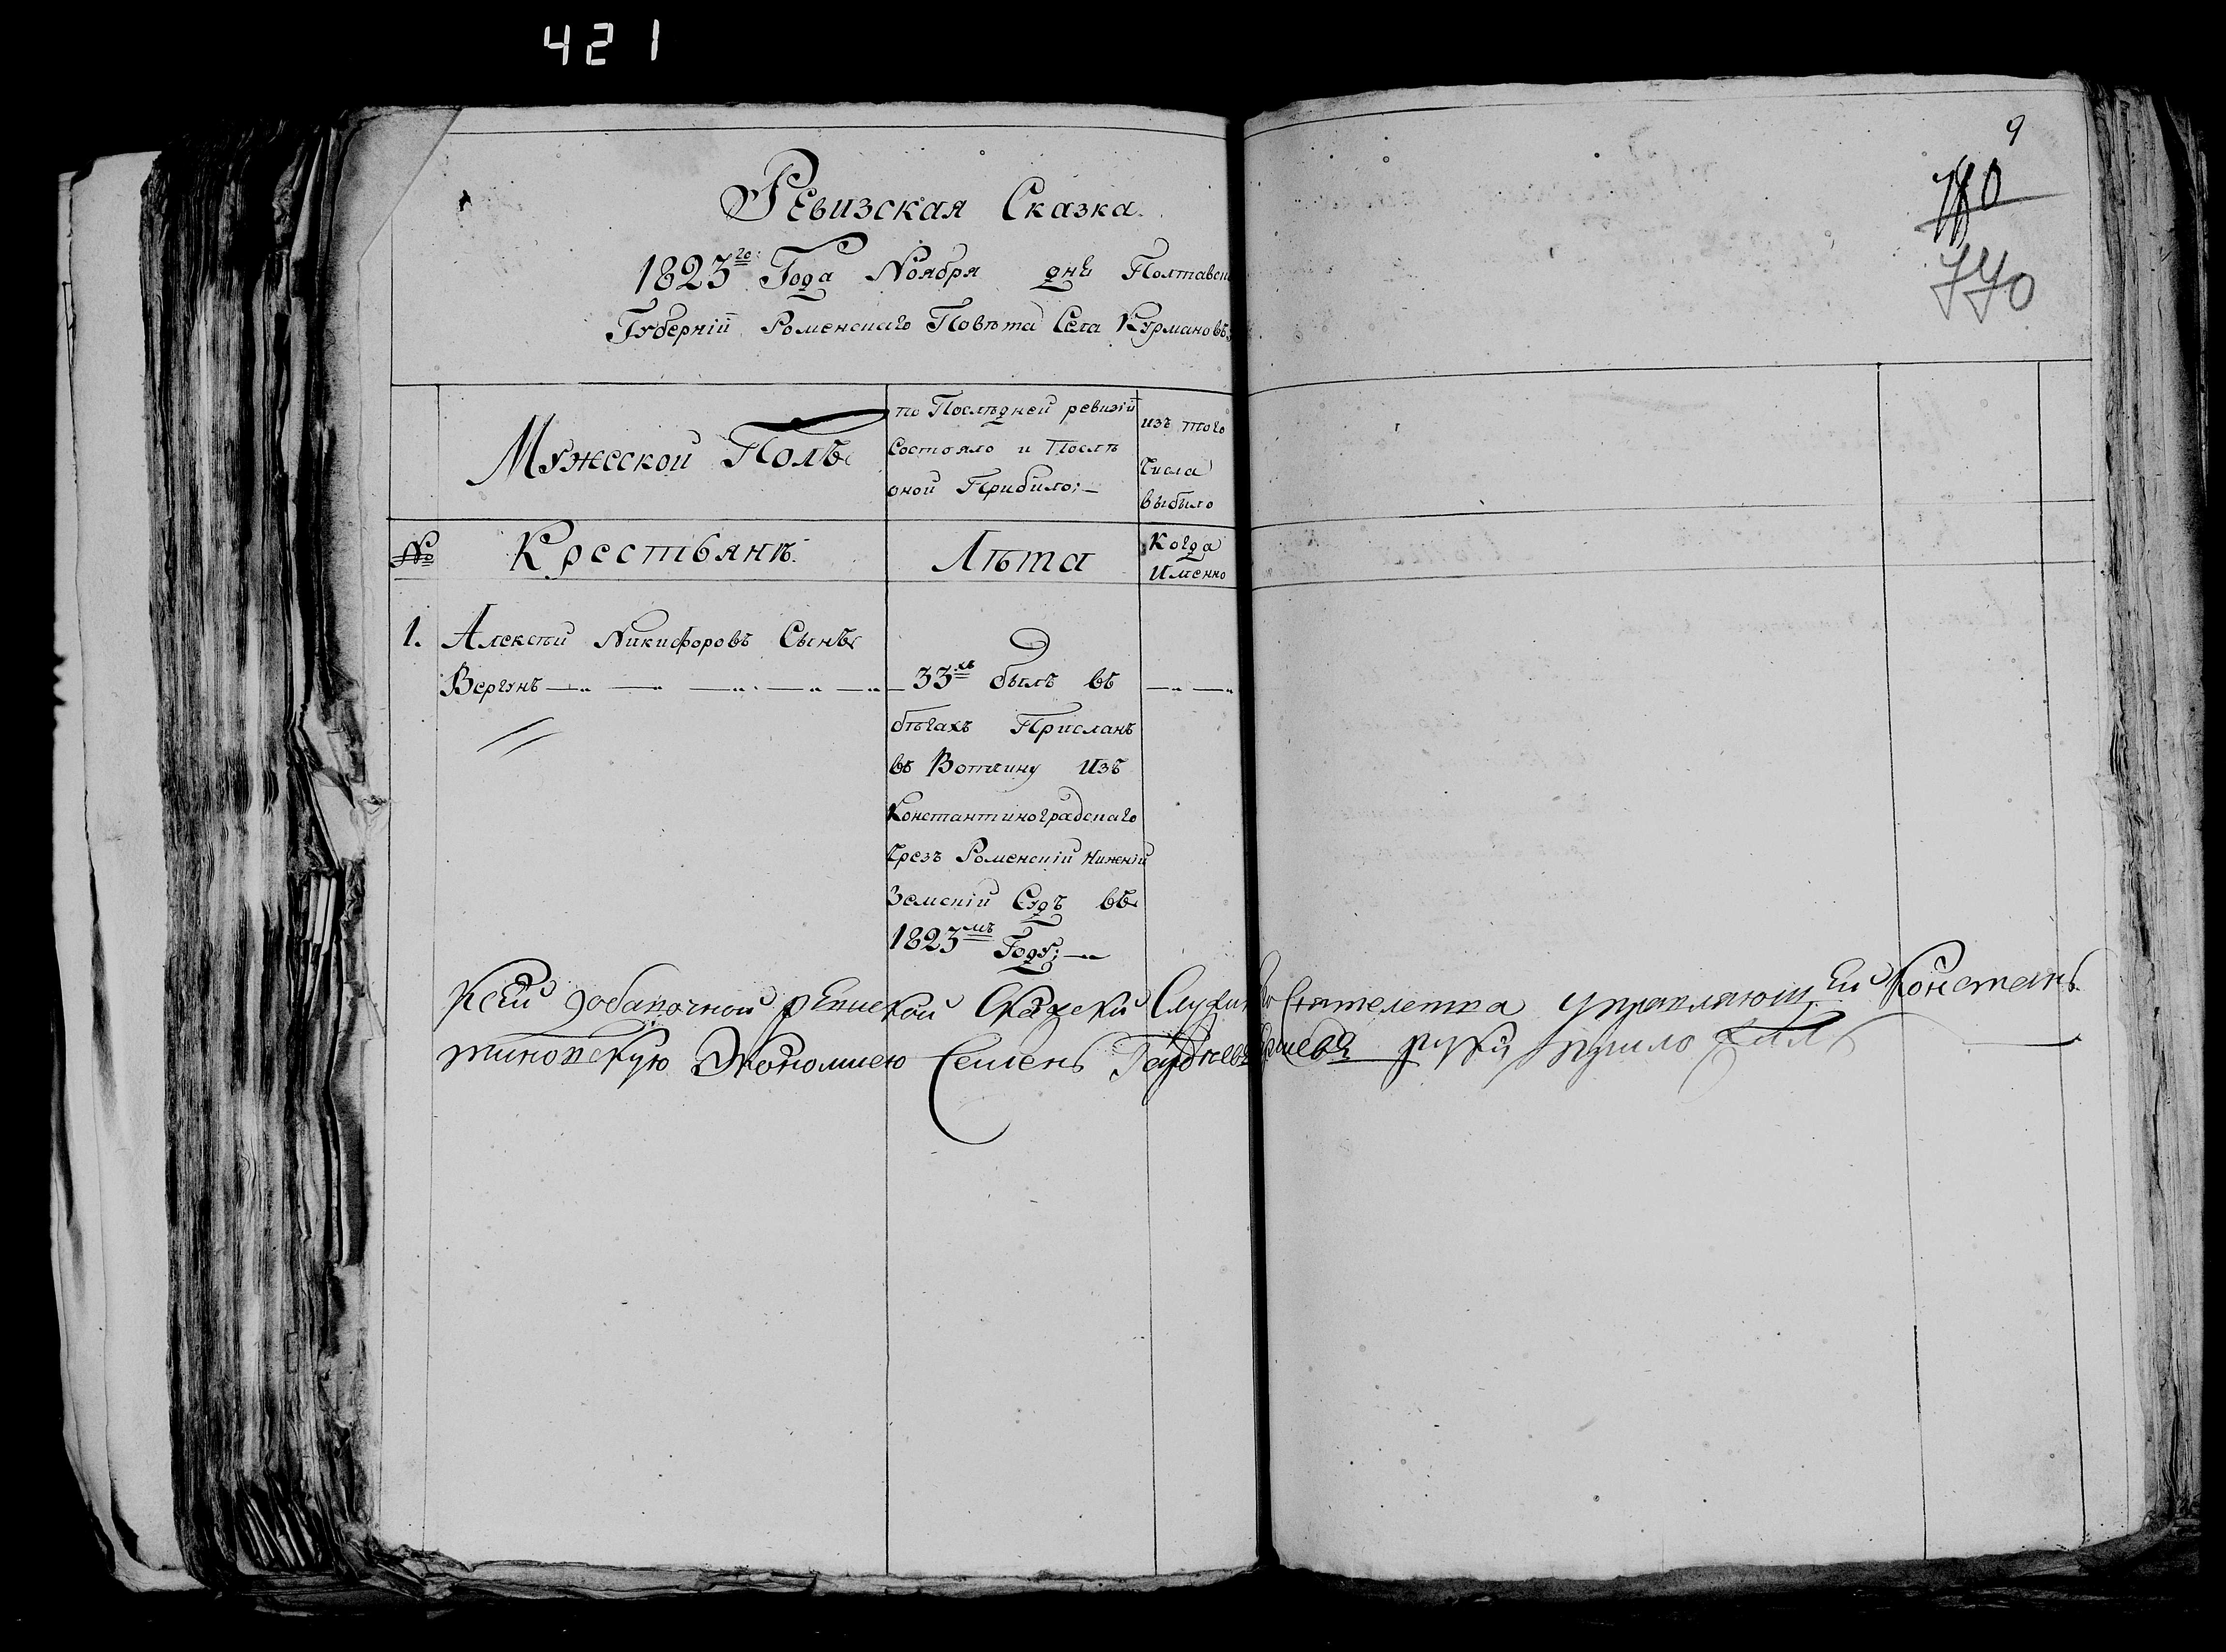 421
Ревизская Сказка.
1823го: Года Ноября дня Полтавск
Губерніи Роменскаго Повѣта Села Курмановъ
9
770
Мужеской Полъ
по Послѣдней ревизіи
Состояло и Послѣ
оной Прибило;—
изъ того
Числа
выбыло
№
Крестьянъ.
Лѣта
Когда
Именно
1. Алексѣй Никифоровъ Сынъ
Вергунъ
33хъ былъ въ
бѣгахъ Присланъ
въ Вотчину Изъ
Константиноградскаго
Чрезъ Роменскій Нижній
Земскій Судъ въ
1823мъ Году;—
Ксей добавочной ревиской Скаски управляющей Констань
тиновскую Экономиею Семенъ руку приложилъ